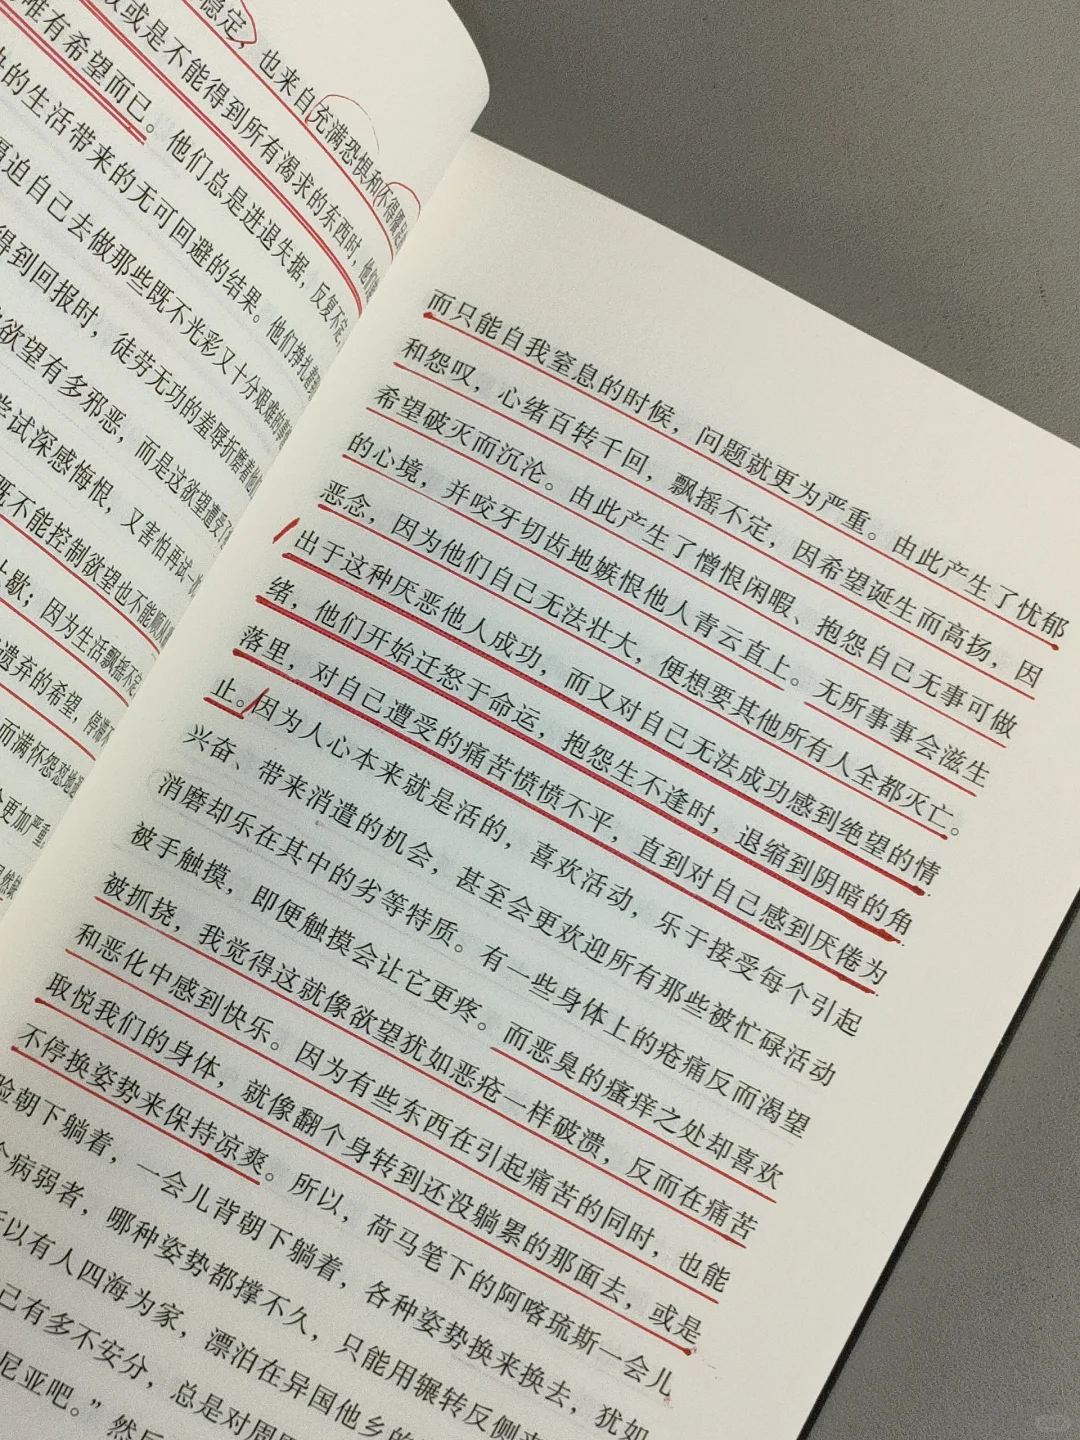 稳定，也来自充满恐惧和不得餍足
或是不能得到所有渴求的东西时，他们
唯有希望而已。他们总是进退失据，反复不定，
的生活带来的无可回避的结果。他们挣扎着
迫自己去做那些既不光彩又十分艰难的事
得到回报时，徒劳无功的羞辱折磨着他们
欲望有多邪恶，而是这欲望遭受了
尝试深感悔恨，又害怕再试一
既不能控制欲望也不能顺从
歇；因为生活飘摇不定
遗弃的希望，停滞
而满怀怨怼地
会更加严重
而只能自我窒息的时候，问题就更为严重。由此产生了忧郁
和怨叹，心绪百转千回，飘摇不定，因希望诞生而高扬，因
希望破灭而沉沦。由此产生了憎恨闲暇、抱怨自己无事可做
的心境，并咬牙切齿地嫉恨他人青云直上。无所事事会滋生
恶念，因为他们自己无法壮大，便想要其他所有人全都灭亡。
出于这种厌恶他人成功，而又对自己无法成功感到绝望的情
绪，他们开始迁怒于命运，抱怨生不逢时，退缩到阴暗的角
落里，对自己遭受的痛苦愤愤不平，直到对自己感到厌倦为
止。因为人心本来就是活的，喜欢活动，乐于接受每个引起
兴奋、带来消遣的机会，甚至会更欢迎所有那些被忙碌活动
消磨却乐在其中的劣等特质。有一些身体上的疮痛反而渴望
被手触摸，即便触摸会让它更疼。而恶臭的瘙痒之处却喜欢
被抓挠，我觉得这就像欲望犹如恶疮一样破溃，反而在痛苦
和恶化中感到快乐。因为有些东西在引起痛苦的同时，也能
取悦我们的身体，就像翻个身转到还没躺累的那面去，或是
不停换姿势来保持凉爽。所以，荷马笔下的阿喀琉斯一会儿
脸朝下躺着，一会儿背朝下躺着，各种姿势换来换去，犹如
个病弱者，哪种姿势都撑不久，只能用辗转反侧来
所以有人四海为家，漂泊在异国他乡的
己有多不安分，总是对周围
尼亚吧。”然后